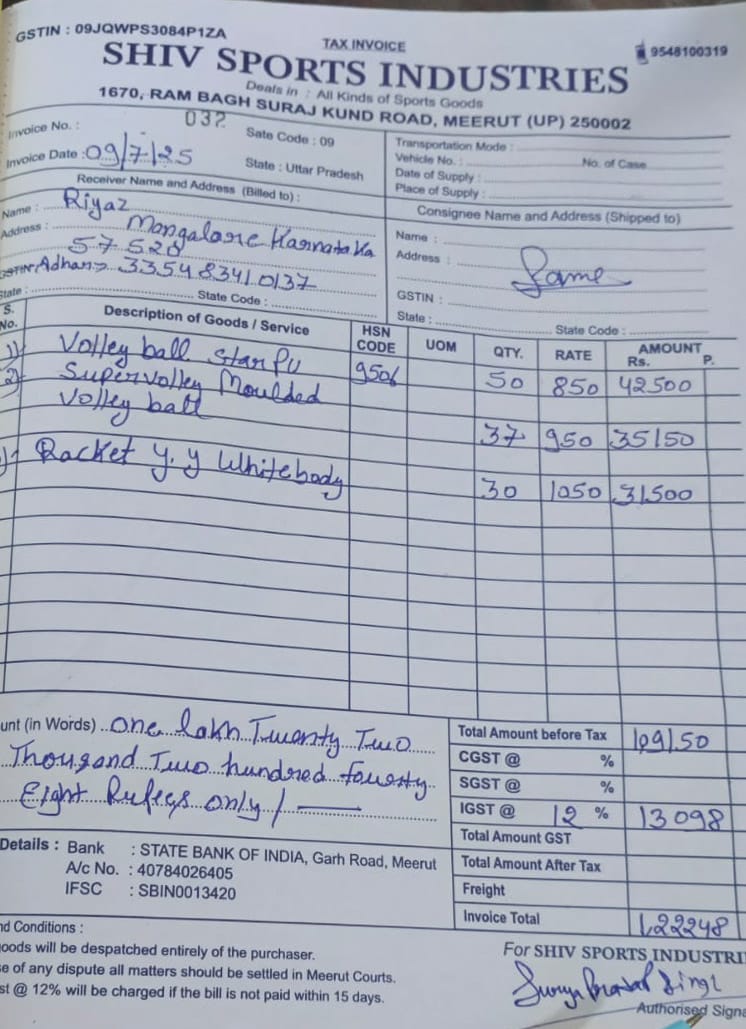 GSTIN : 09JQWPS3084P1ZA
TAX INVOICE
9548100319
SHIV SPORTS INDUSTRIES
Deals in : All Kinds of Sports Goods
1670, RAM BAGH SURAJ KUND ROAD, MEERUT (UP) 250002
Invoice No. : 032
Sate Code : 09
Invoice Date : 09/7/25
State : Uttar Pradesh
Transportation Mode :
Vehicle No. : No. of Case
Date of Supply :
Place of Supply :
Receiver Name and Address (Billed to) :
Consignee Name and Address (Shipped to)
Name : Riyaz
Address : Mangalore Karnataka
57520
GSTIN: Adhar 335483410137
State : State Code :
Name :
Address : Same
GSTIN :
State : State Code :
S. No. Description of Goods / Service HSN CODE UOM QTY. RATE AMOUNT Rs. P.
1) Volley ball Star PU 9506 50 850 42500
2) Super volley Moulded
Volley ball 37 950 35150
Racket Y.Y White body 30 1050 31500
unt (in Words) One lakh Twenty Two
Thousand Two hundred fourty
Eight Rufees only /
Total Amount before Tax 109150
CGST @ %
SGST @ %
IGST @ 12 % 13098
Total Amount GST
Total Amount After Tax
Freight
Invoice Total 1,22248
Details : Bank : STATE BANK OF INDIA, Garh Road, Meerut
A/c No. : 40784026405
IFSC : SBIN0013420
nd Conditions :
oods will be despatched entirely of the purchaser.
e of any dispute all matters should be settled in Meerut Courts.
st @ 12% will be charged if the bill is not paid within 15 days.
For SHIV SPORTS INDUSTRI
Singh
Authorised Signa